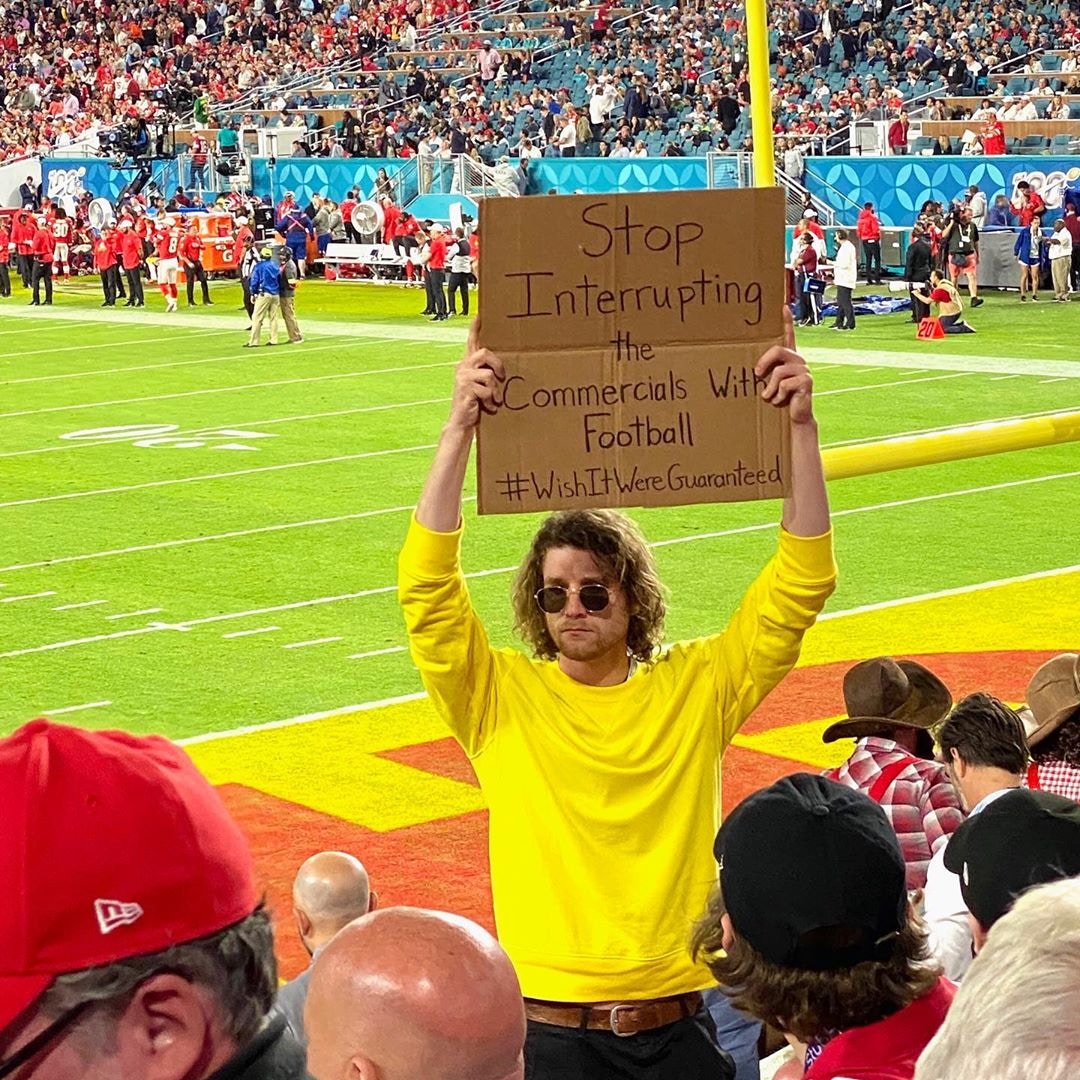 Stop
Interrupting
the
Commercials With
Football
#WishItWereGuaranteed
30
8
G
20
20
100